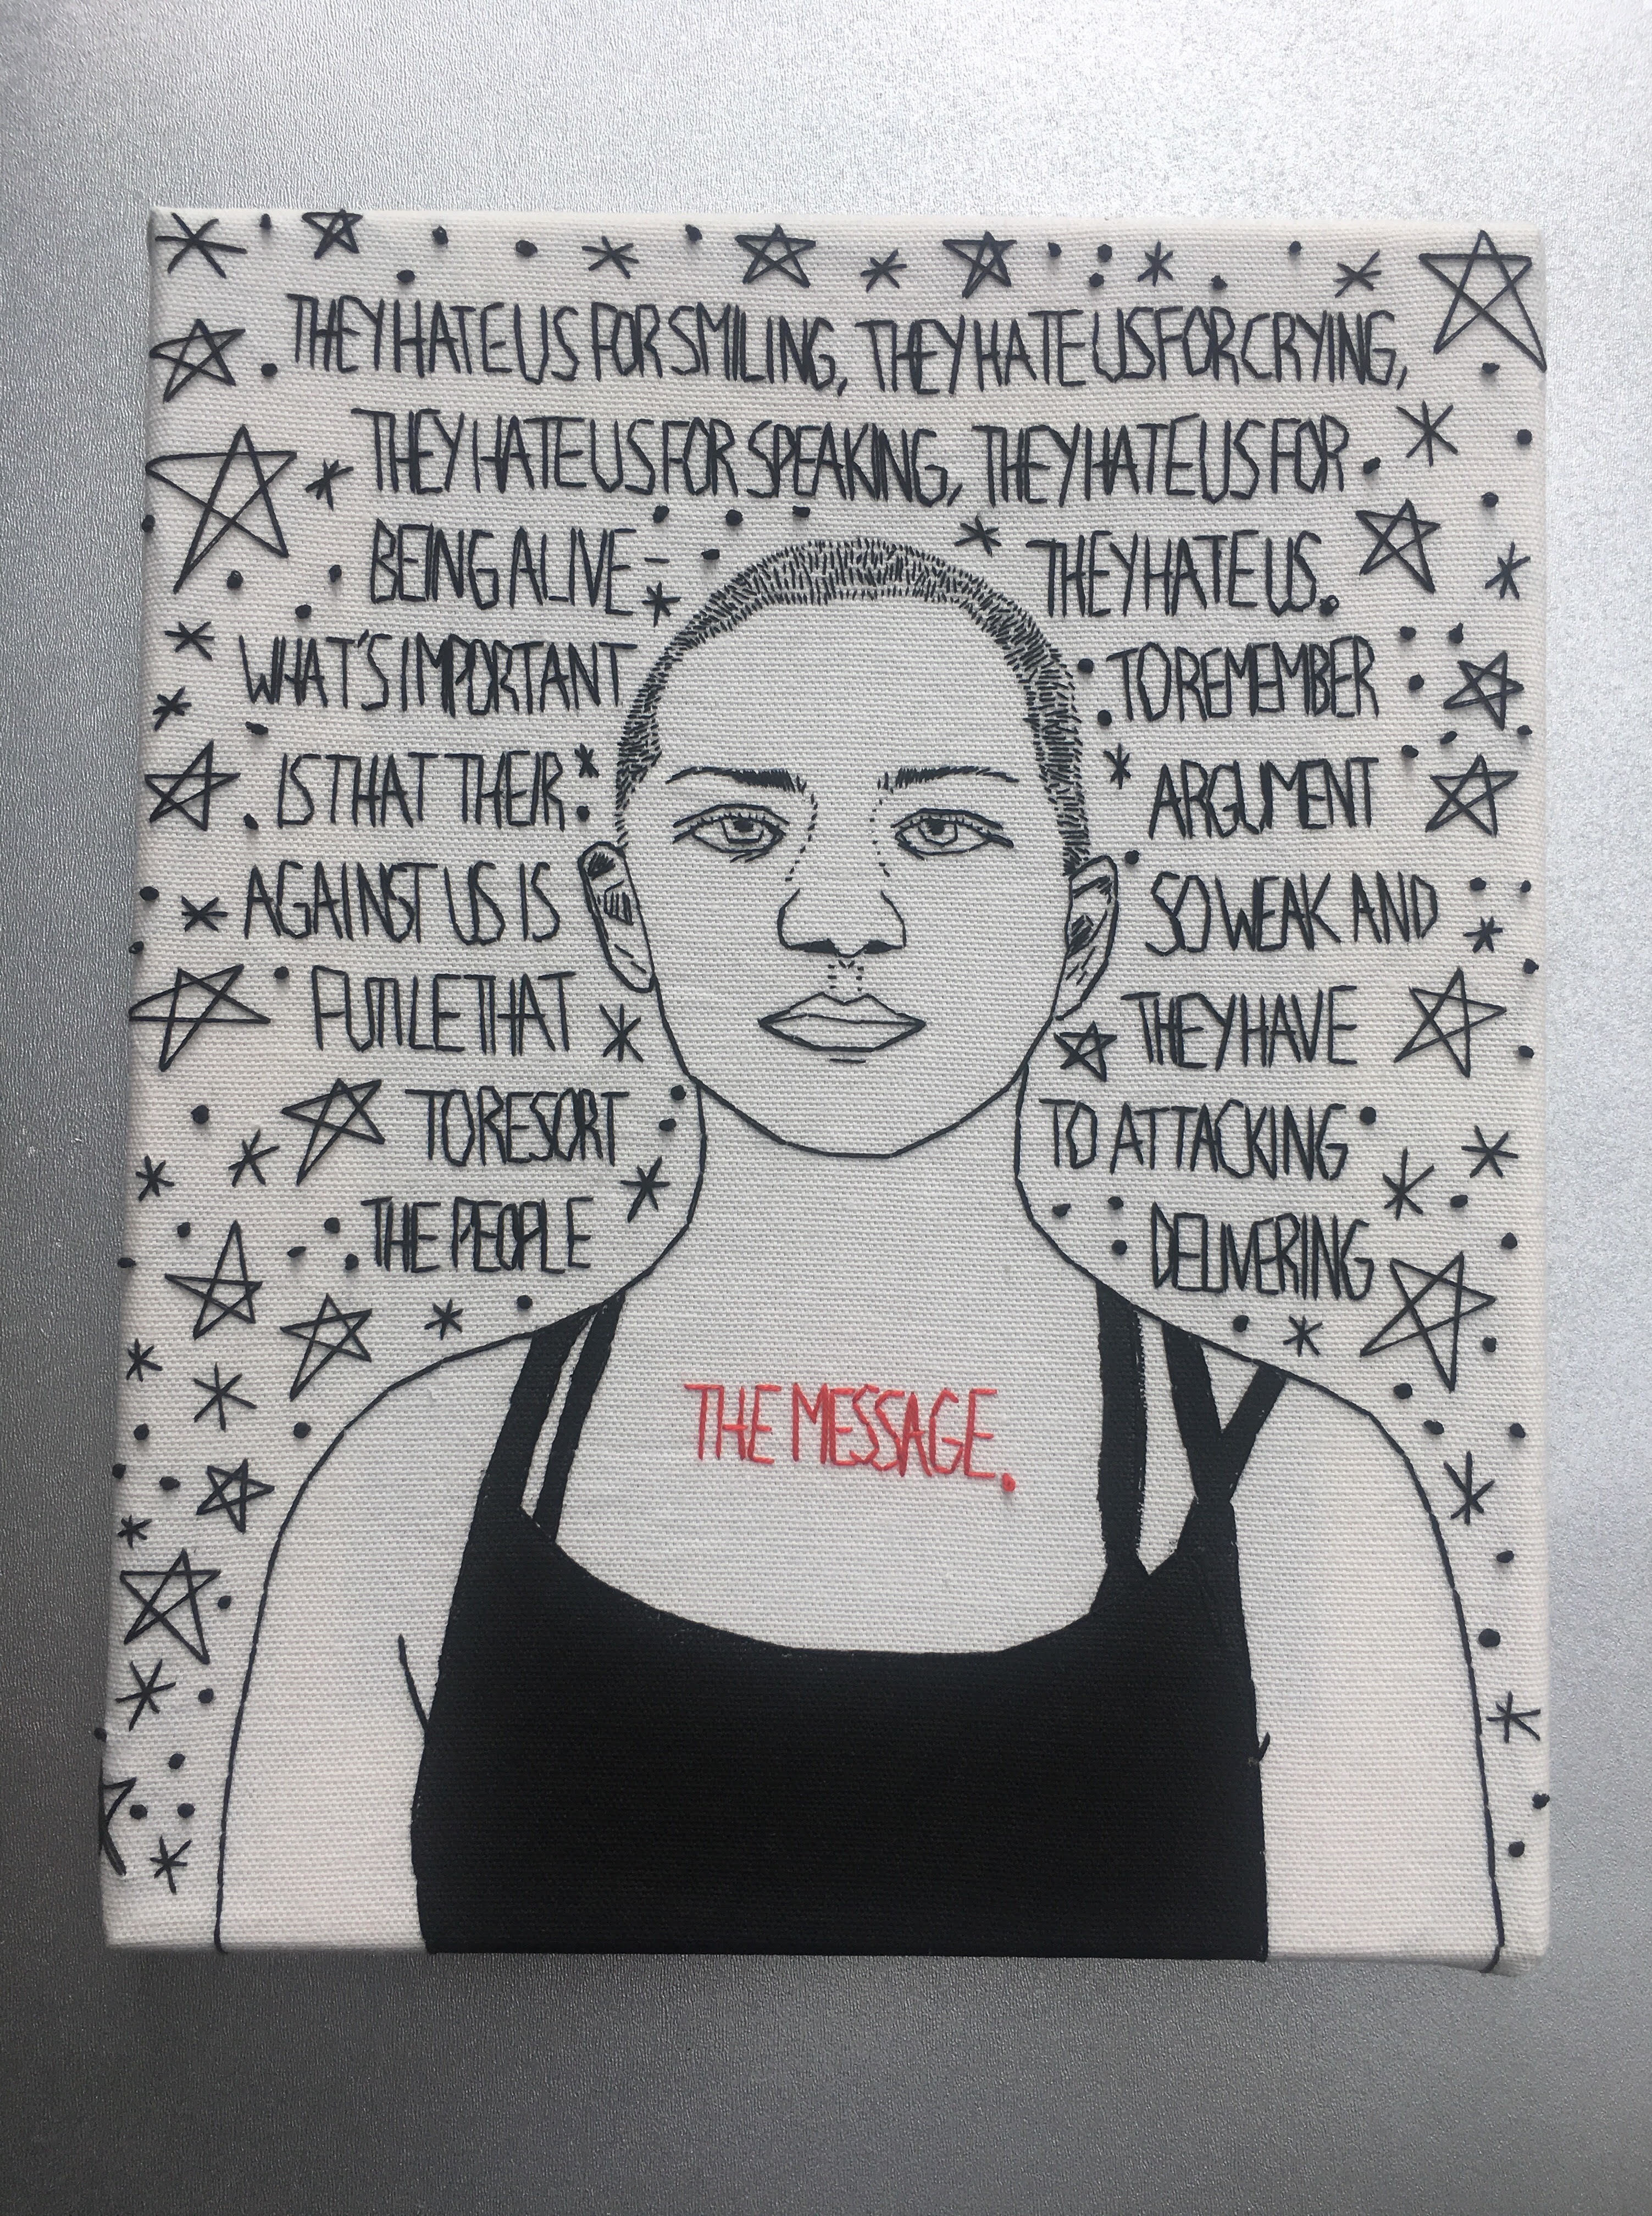 THEY HATE US FOR SMILING, THEY HATE US FOR CRYING,
THEY HATE US FOR SPEAKING, THEY HATE US FOR
BEING ALIVE - THEY HATE US.
WHAT'S IMPORTANT TO REMEMBER
IS THAT THEIR ARGUMENT
AGAINST US IS SO WEAK AND
FUTILE THAT THEY HAVE
TO RESORT TO ATTACKING
THE PEOPLE DELIVERING
THE MESSAGE.